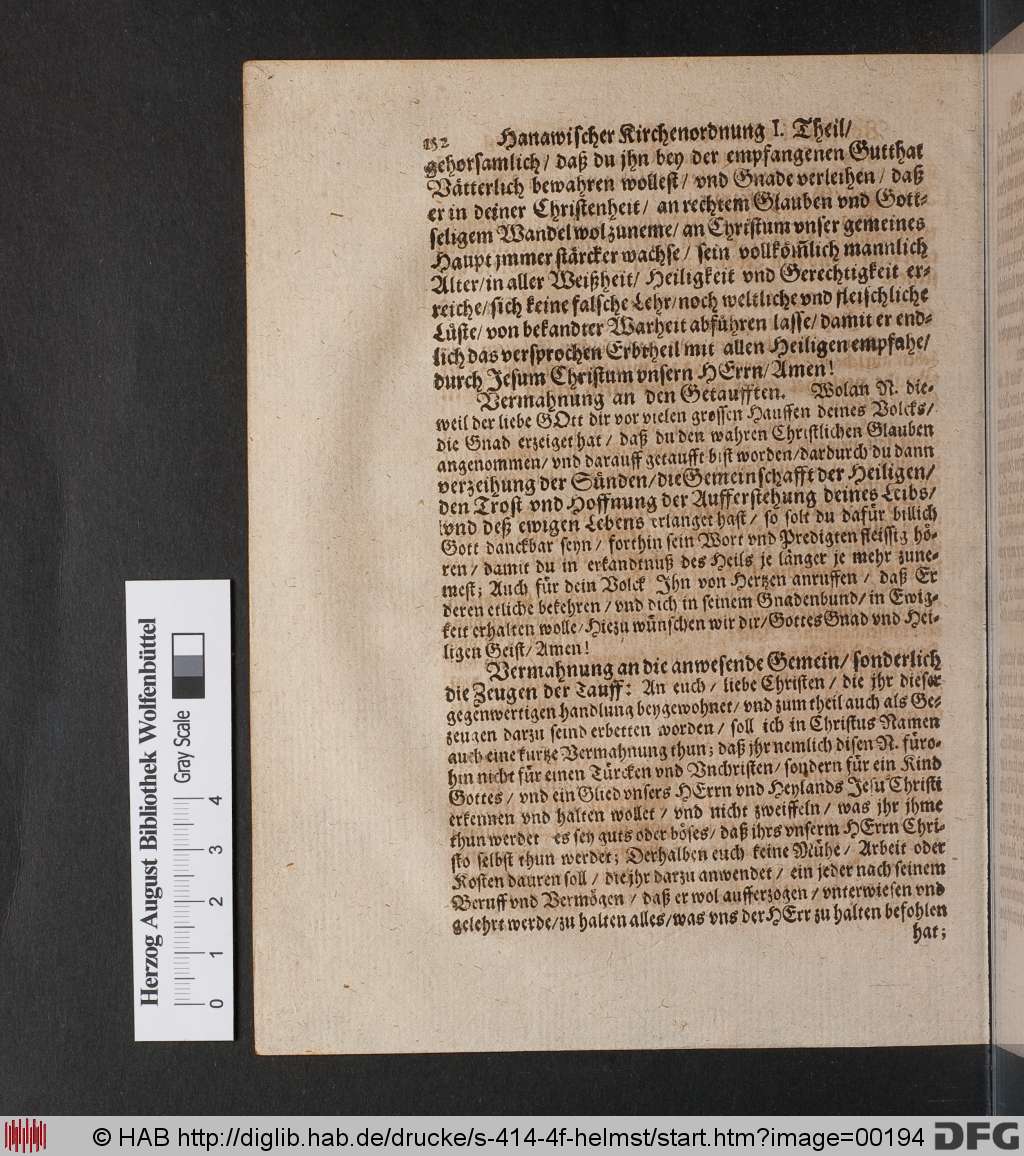 152 Hanawischer Kirchenordnung I. Theil/
gehorsamlich/ daß du jhn bey der empfangenen Gutthat
Vätterlich bewahren wollest/ vnd Gnade verleihen/ daß
er in deiner Christenheit/ an rechtem Glauben vnd Gott-
seligem Wandel wol zuneme/ an Christum vnser gemeines
Haupt jmmer stärcker wachse/ sein vollkom̃lich mannlich
Alter/ in aller Weißheit/ Heiligkeit vnd Gerechtigkeit er-
reiche/ sich keine falsche Lehr/ noch weltliche vnd fleischliche
Lüste/ von bekandter Warheit abführen lasse/ damit er end-
lich das versprochen Erbtheil mit allen Heiligen empfahe/
durch Jesum Christum vnsern HErrn/ Amen!
Vermahnung an den Getaufften. Wolan N. die-
weil der liebe GOtt dir vor vielen grossen Hauffen deines Volcks/
die Gnad erzeiget hat/ daß du den wahren Christlichen Glauben
angenommen/ vnd darauff getaufft bist worden/ dardurch du dann
verzeihung der Sünden/ die Gemeinschafft der Heiligen/
den Trost vnd Hoffnung der Aufferstehung deines Leibs/
vnd deß ewigen Lebens erlanget hast/ so solt du dafür billich
Gott danckbar seyn/ forthin sein Wort vnd Predigten fleissig hö-
ren/ damit du in erkandtnuß des Heils je länger je mehr zune-
mest; Auch für dein Volck Ihn von Hertzen anruffen/ daß Er
deren etliche bekehren/ vnd dich in seinem Gnadenbund/ in Ewig-
keit erhalten wolle/ Hiezu wünschen wir dir/ Gottes Gnad vnd Hei-
ligen Geist/ Amen!
Vermahnung an die anwesende Gemein/ sonderlich
die Zeugen der Tauff: An euch/ liebe Christen/ die jhr dieser
gegenwertigen handlung beygewohnet/ vnd zum theil auch als Ge-
zeugen darzu seind erbetten worden/ soll ich in Christus Namen
auch eine kurtze Vermahnung thun; daß jhr nemlich disen N. füro-
hin nicht für einen Türcken vnd Vnchristen/ sondern für ein Kind
Gottes/ vnd ein Glied vnsers HErrn vnd Heylands Jesu Christi
erkennen vnd halten wollet/ vnd nicht zweiffeln/ was jhr jhme
thun werdet es sey guts oder böses/ daß ihrs vnserm HErrn Chri-
sto selbst thun werdet; Derhalben euch keine Mühe/ Arbeit oder
Kosten dauren soll/ die jhr darzu anwendet/ ein jeder nach seinem
Beruff vnd Vermögen/ daß er wol aufferzogen/ vnterwiesen vnd
gelehrt werde/ zu halten alles/ was vns der HErr zu halten befohlen
hat;
Herzog August Bibliothek Wolfenbüttel
Gray Scale
0 1 2 3 4
© HAB http://diglib.hab.de/drucke/s-414-4f-helmst/start.htm?image=00194
DFG